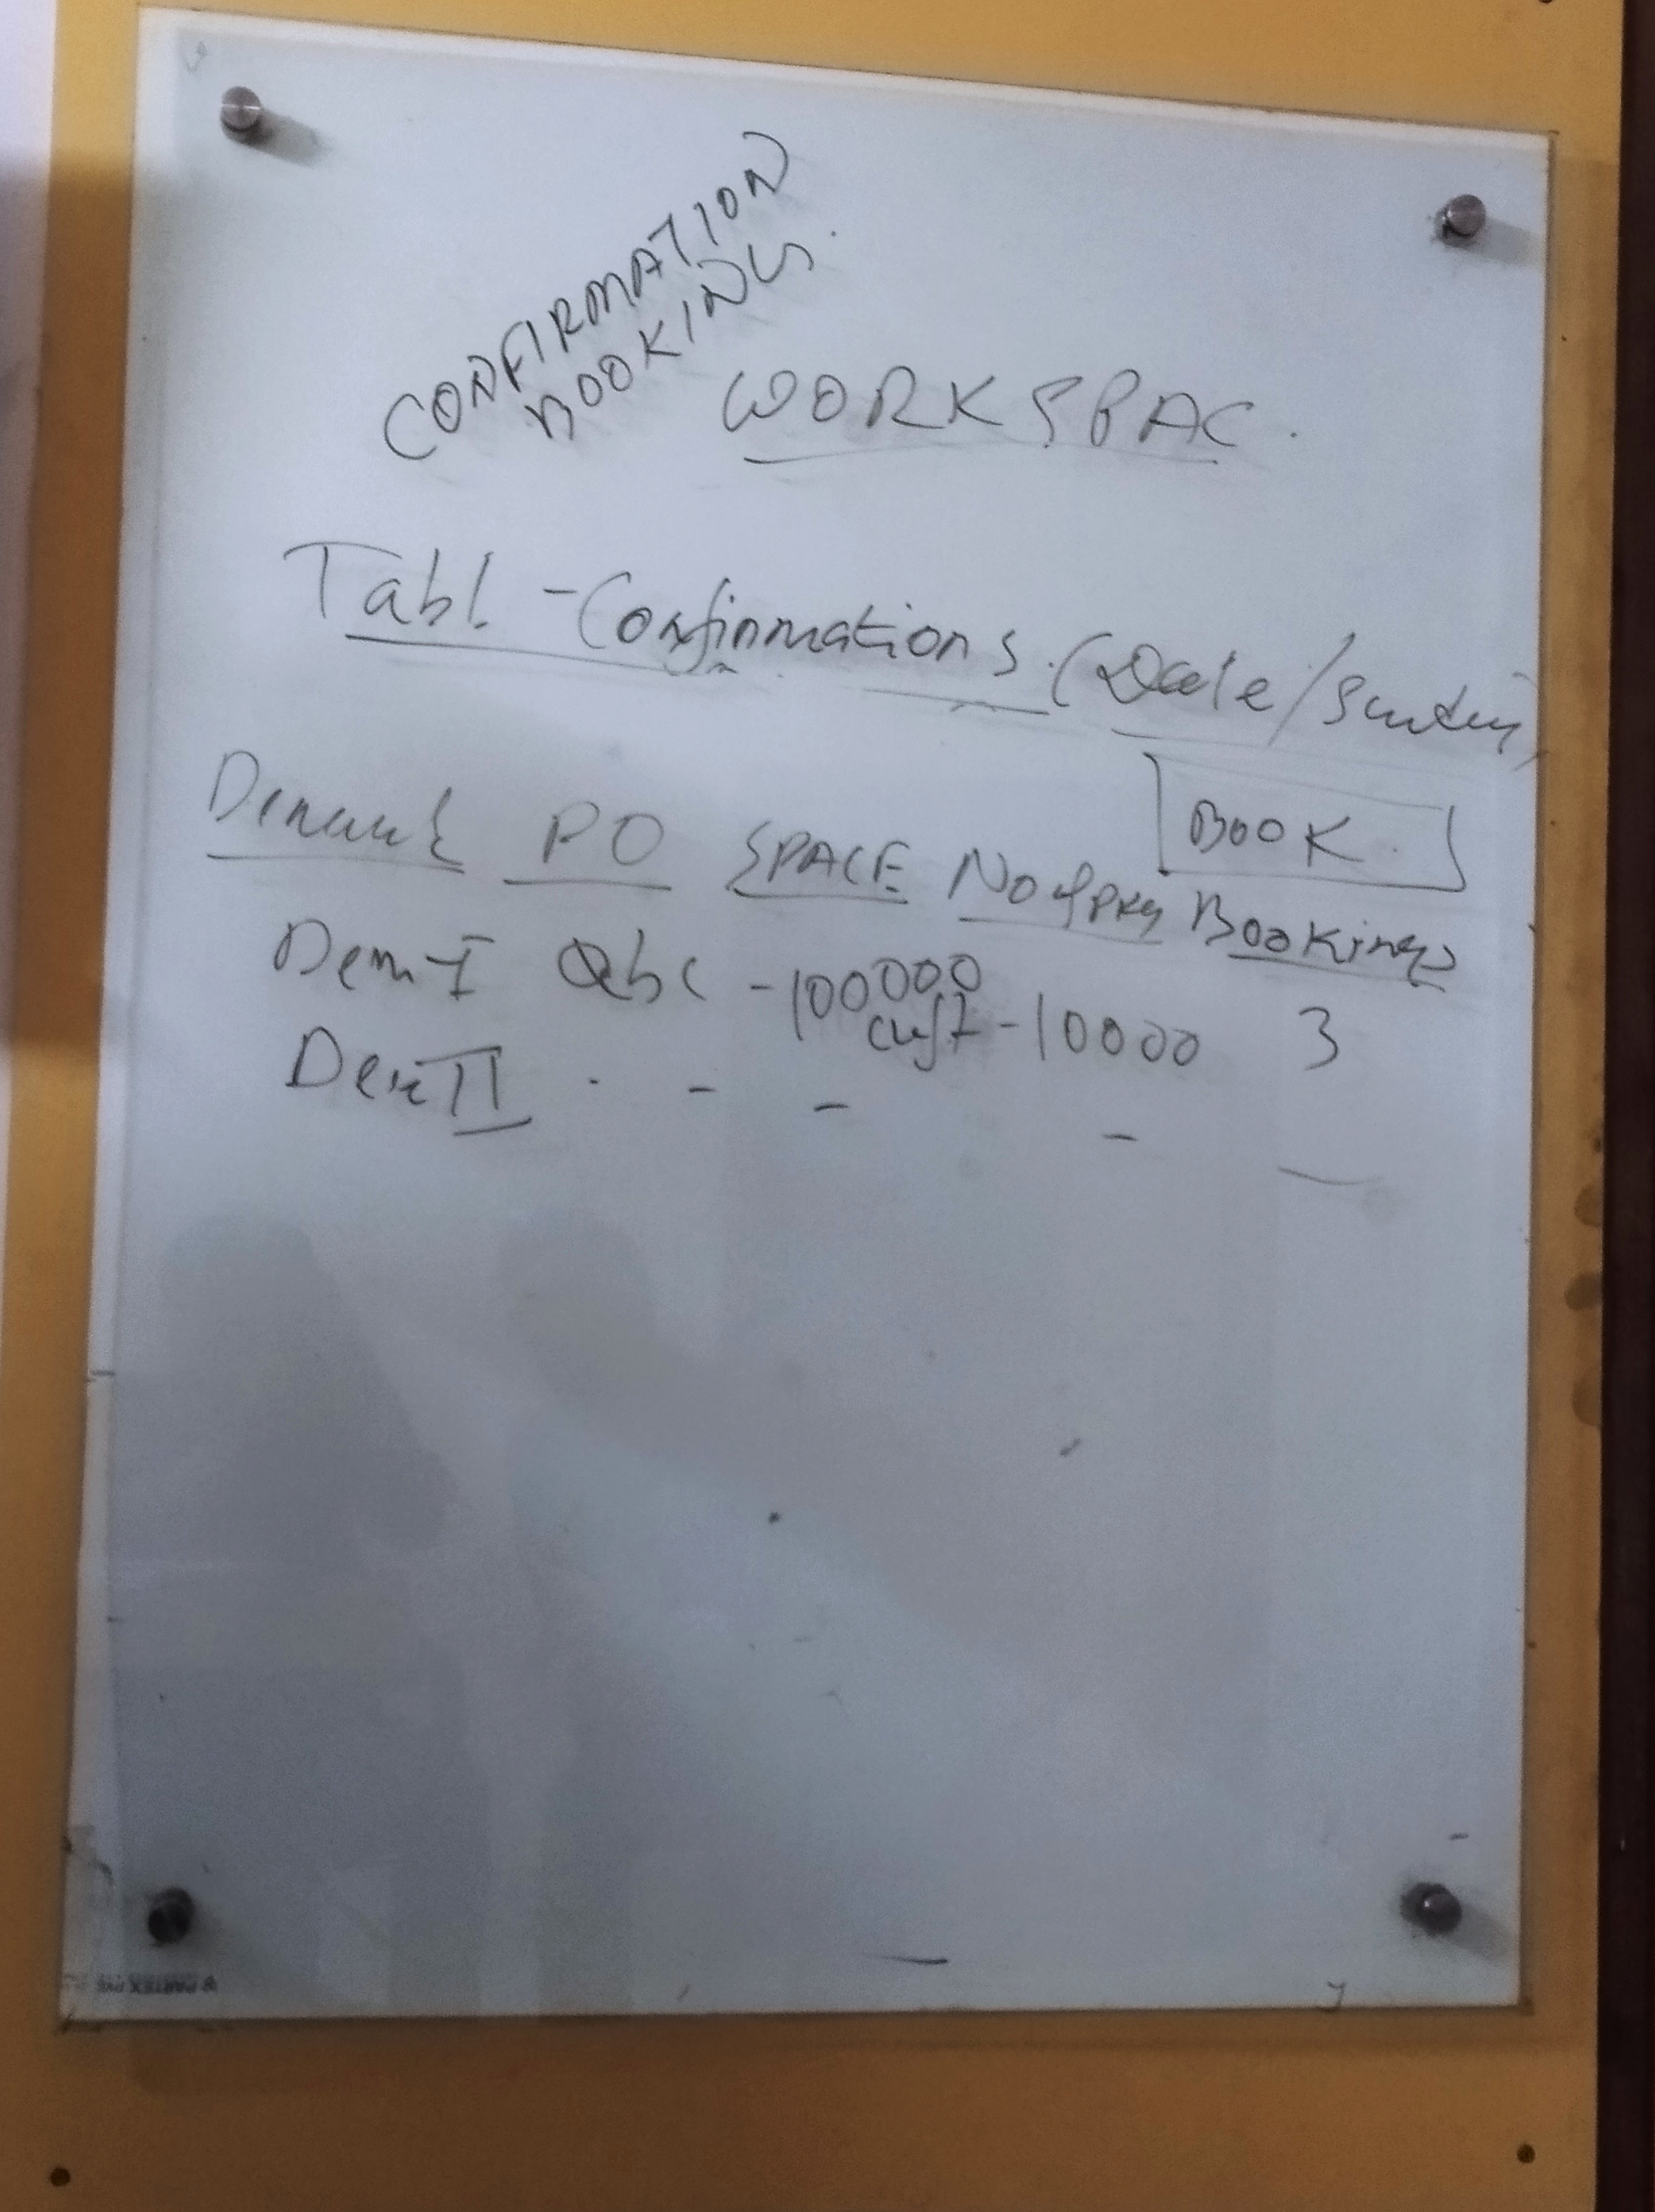 CONFIRMATION
BOOKINGS.
WORKSPAC.
Tabl - Confirmations. (Date/
BOOK.
Demand PO SPACE No of PKg Bookings
Dem-I abc -100000 cuft -10000 3
Dem II . - - -